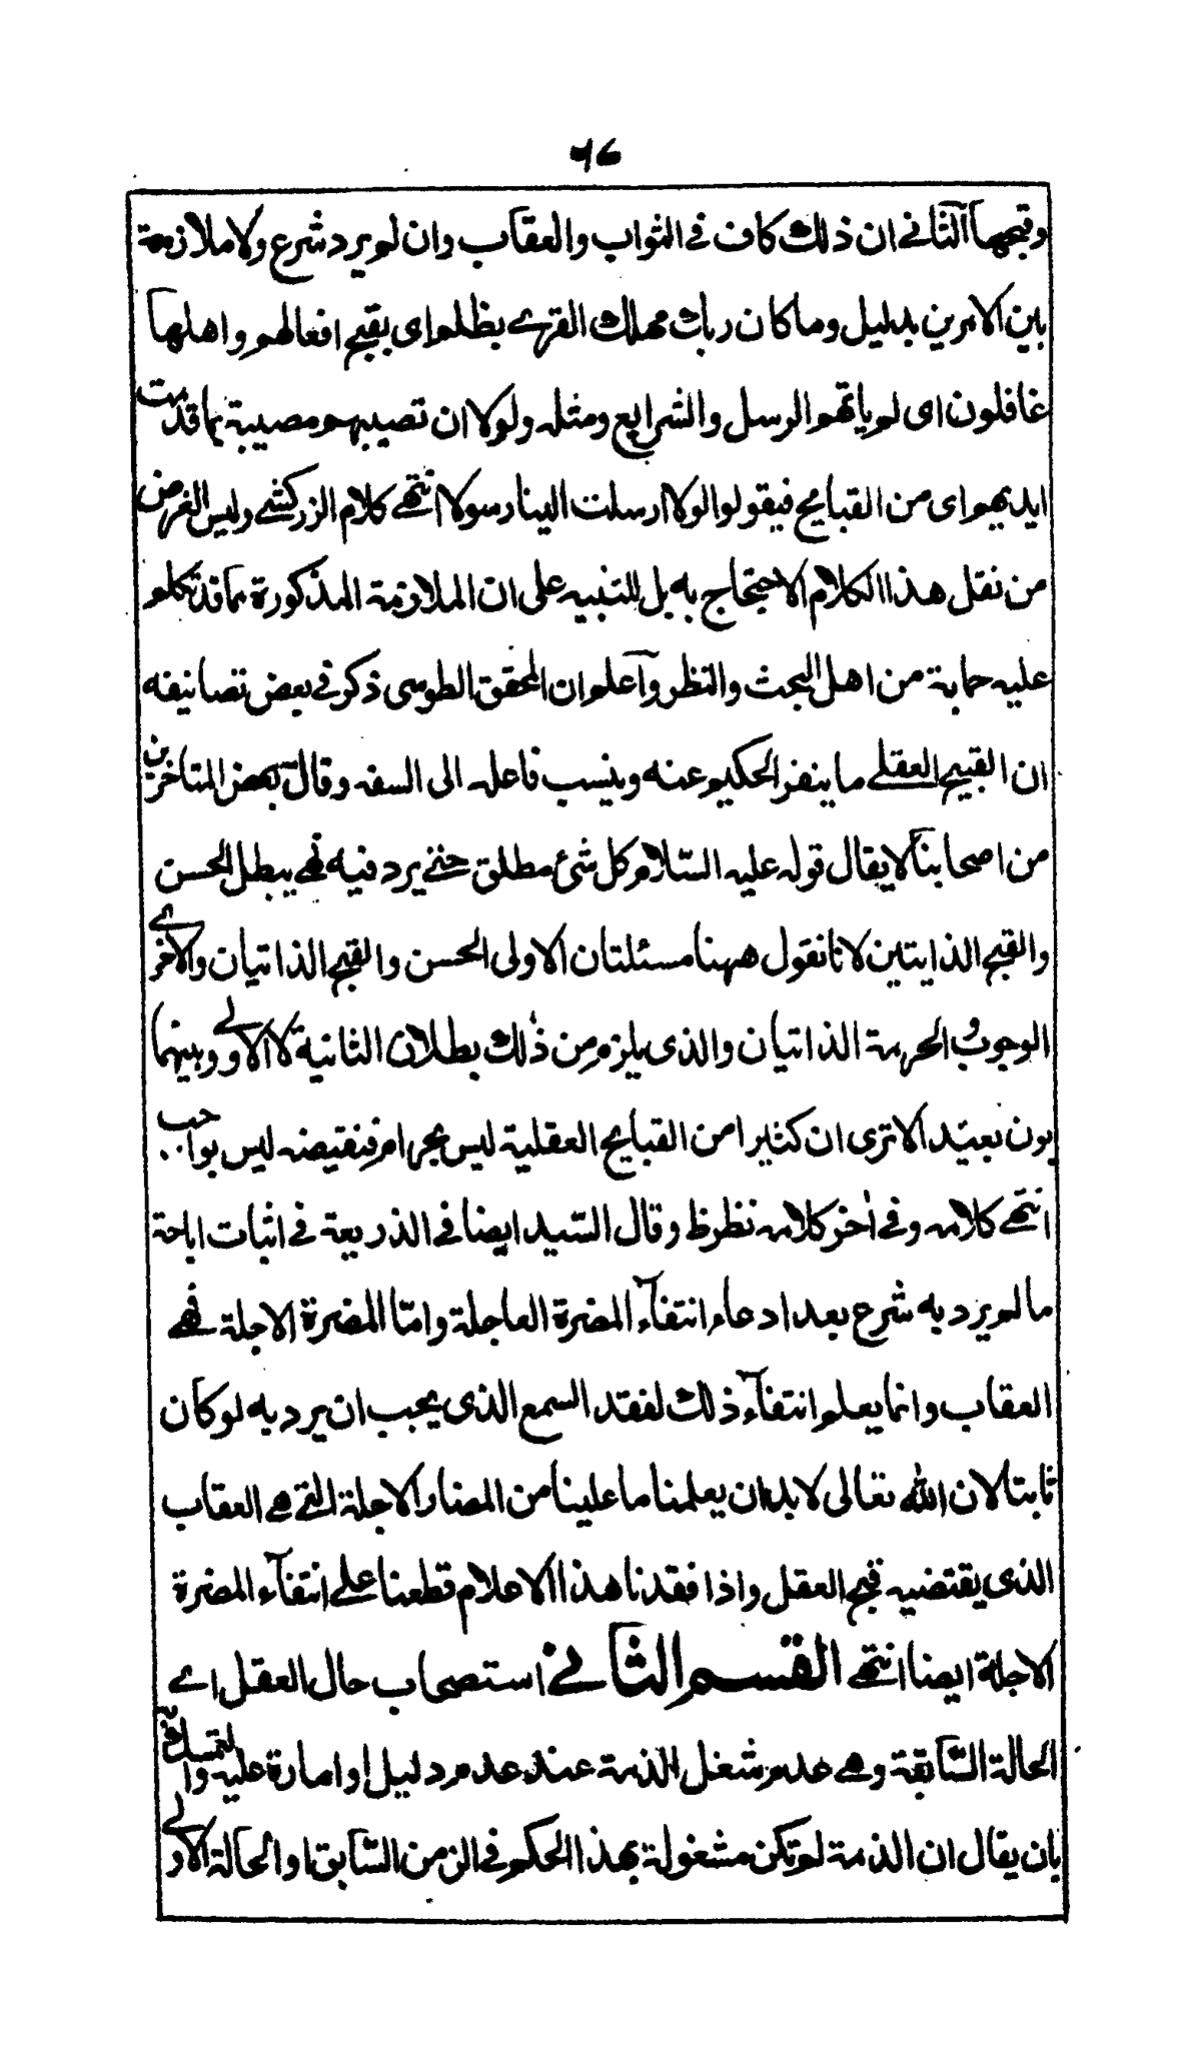 ٩٤
وقبحها الثانى ان ذلك كاف فى الثواب والعقاب وان لم يرد شرع ولا ملازمة
بين الامرين بدليل وما كان ربك مهلك القرى بظلم اى بقبيح افعالهم واهلها
غافلون اى لم ياتهم الرسل والشرايع ومثله ولولا ان تصيبهم مصيبة بما قدمت
ايديهم اى من القبايح فيقولوا لولا ارسلت الينا رسولا انتهى كلام الزركشى وليس الغرض
من نقل هذا الكلام الاحتجاج به بل التنبيه على ان الملازمة المذكورة مما قد تكلم
عليه جماعة من اهل البحث والنظر واعلم ان المحقق الطوسى ذكر فى بعض تصانيفه
ان القبيح العقلى ما ينفر الحكيم عنه وينسب فاعله الى السفه وقال بعض المتاخرين
من اصحابنا لا يقال قوله عليه السّلام كل شئ مطلق حتى يرد فيه نهى يبطل الحسن
والقبح الذاتيين لانا نقول ههنا مسئلتان الاولى الحسن والقبح الذاتيان والاخرى
الوجوب والحرمة الذاتيان والذى يلزم من ذلك بطلان الثانية لا الاولى وبينهما
بون بعيد الا ترى ان كثيرا من القبايح العقلية ليس بحرام ونقيضه ليس بواجب
انتهى كلامه وفى اٰخر كلامه نظر ظ وقال السّيد ايضا فى الذريعة فى اثبات اباحة
ما لم يرد به شرع بعد ادعاء انتفآء المضرة العاجلة وامّا المضرة الاجلة فهى
العقاب وانما يعلم انتفآء ذلك لفقد السمع الذى يجب ان يرد به لو كان
ثابتا لان الله تعالى لابد ان يعلمنا ما علينا من المضار الاجلة التى هى العقاب
الذى يقتضيه قبح العقل واذا فقدنا هذا الاعلام قطعنا على انتفآء المضرة
الاجلة ايضا انتهى القسم الثانى استصحاب حال العقل اى
الحالة السّابقة وهى عدم شغل الذمة عند عدم دليل او امارة عليه والتمسك به
بان يقال ان الذمة لم تكن مشغولة بهذا الحكم فى الزمن السّابق او الحالة الاولى